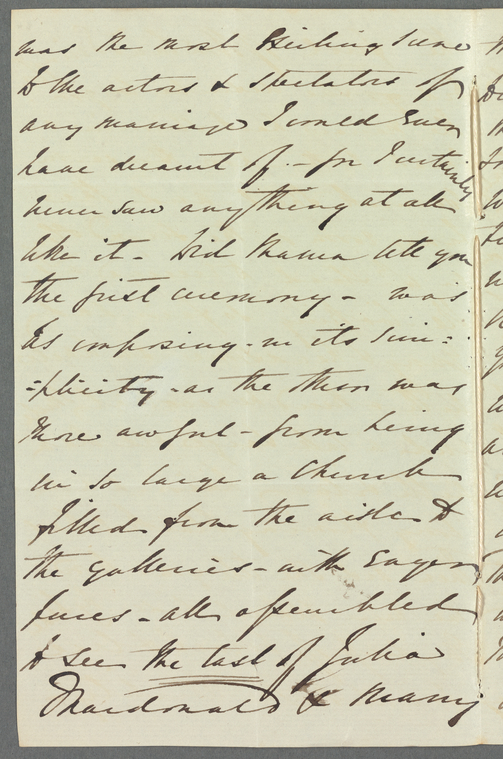 was the most thrilling scene
to the actors & spectators of
any marriage I could ever
have dreamt of. - for I certainly
never saw anything at all
like it - Did Mama tell you
the first ceremony - was
as imposing - in its sim:
:plicity - as the other was
more awful - from being
in so large a Church
filled from the aisle to
the galleries - with eager
faces - all assembled
to see the last of Julia
Macdonald & many